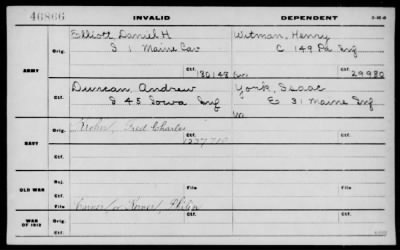 46866 INVALID DEPENDENT
Elliott Daniel H Witman, Henry
Orig. S 1 Maine Cav C 149 Pa Inf
ARMY Ctf. 180148 Ctf. 29980
Duncan, Andrew York, Isaac
Ctf. G 45 Iowa Inf E 31 Maine Inf
Orig. Fred Charles
NAVY Ctf.
Ctf. Ctf.
Rej.
OLD WAR File File
Ctf.
WAR OF 1812 Orig. Philip
Ctf. Ctf.